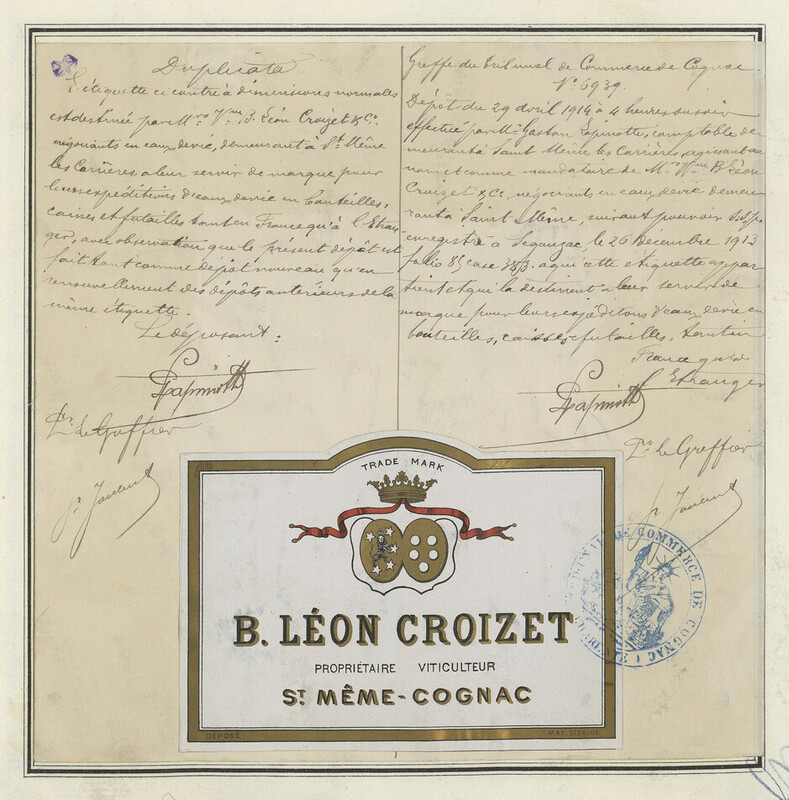 Duplicata
L'étiquette ci contre à dimensions normales
est destinée par Mrs Vve B. Léon Croizet & Cie
négociants en eaux de vie, demeurant à St Même
les Carrières à leur servir de marque pour
leurs expéditions d'eaux de vie en bouteilles,
caisses et futailles tant en France qu'à l'Etran-
ger, avec observation que le présent dépôt est
fait tant comme dépôt nouveau qu'en
renouvellement des dépôts antérieurs de la
même étiquette.
Le déposant:
Pr le Greffier
Greffe du Tribunal de Commerce de Cognac.
No 6939.
Dépôt du 29 avril 1914 à 4 heures du soir
effectué par Mr Gaston comptable de-
meurant à Saint Même les Carrières, agissant au
nom et comme mandataire de Mrs Vve B. Léon
Croizet & Cie, négociants en eaux de vie demeu-
rant à Saint Même, suivant pouvoir
enregistré à Segonzac, le 26 décembre 1913
folio 85 case à qui cette étiquette appar-
tient et qui la destinent à leur servir de
marque pour leurs expéditions d'eaux de vie en
bouteilles, caisses & futailles, tant en
France qu'à
l'Etranger
Pr le Greffier
TRADE MARK
B. LÉON CROIZET
PROPRIÉTAIRE VITICULTEUR
ST MÊME-COGNAC
DÉPOSÉ
TRIBUNAL DE COMMERCE DE COGNAC